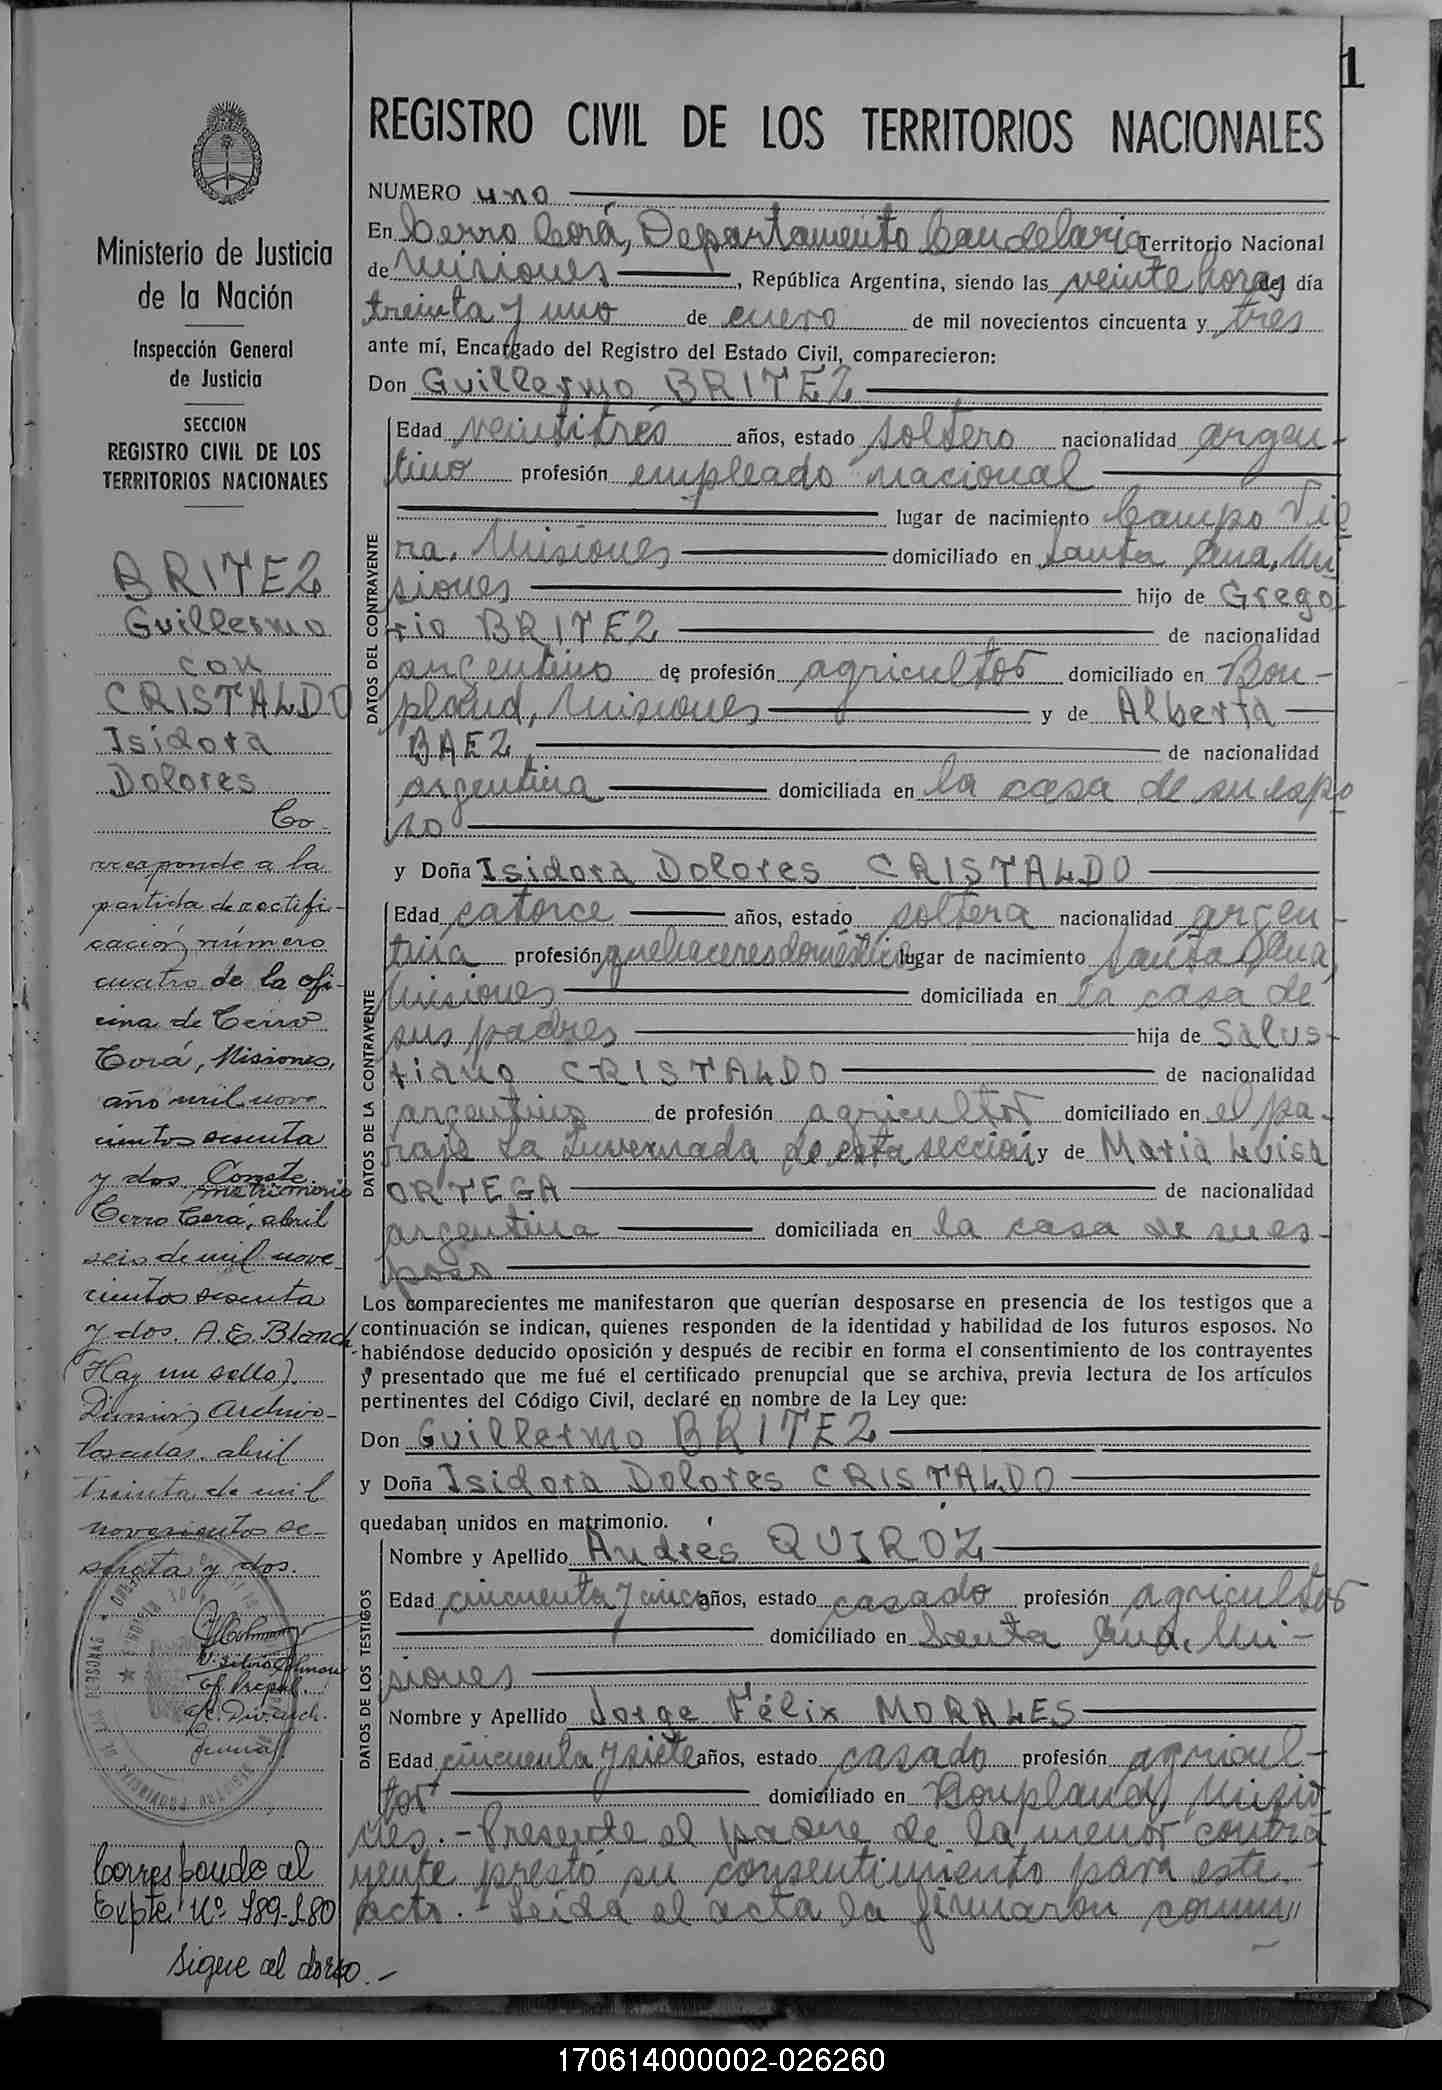 1
REGISTRO CIVIL DE LOS TERRITORIOS NACIONALES
Ministerio de Justicia
de la Nación
Inspección General
de Justicia
SECCION
REGISTRO CIVIL DE LOS
TERRITORIOS NACIONALES
BRITEZ
Guillermo
con
CRISTALDO
Isidora
Dolores
Co-
rresponde a la
partida de rectifi-
cación número
cuatro de la ofi-
cina de Cerro
Corá, Misiones,
año mil nove-
cientos sesenta
y dos. Conste.
matrimonio
Cerro Corá, abril
seis de mil nove-
cientos sesenta
y dos. A. E. Blanch
(Hay un sello).
Division Archivo-
Posadas, abril
treinta de mil
novecientos se-
senta y dos.
Of. Prcpal.
a/c. Div. arch.
Corresponde al
Expte Nº 189-180
Sigue al dorso.-
NUMERO uno
En Cerro Corá, Departamento Candelaria Territorio Nacional
de Misiones, República Argentina, siendo las veinte horas del día
treinta y uno de enero de mil novecientos cincuenta y tres
ante mí, Encargado del Registro del Estado Civil, comparecieron:
Don Guillermo BRITEZ
DATOS DEL CONTRAYENTE
Edad veintitrés años, estado soltero nacionalidad argen-
tino profesión empleado nacional
lugar de nacimiento Campo Vie
ra, Misiones domiciliado en Santa Ana, Mi
siones hijo de Grego
rio BRITEZ de nacionalidad
argentino de profesión agricultor domiciliado en Bon-
pland, Misiones y de Alberta
BAEZ de nacionalidad
argentina domiciliada en la casa de su espo
so
y Doña Isidora Dolores CRISTALDO
DATOS DE LA CONTRAYENTE
Edad catorce años, estado soltera nacionalidad argen-
tina profesión quehaceres domésticos lugar de nacimiento Santa Ana,
Misiones domiciliada en la casa de
sus padres hija de Salus-
tiano CRISTALDO de nacionalidad
argentino de profesión agricultor domiciliado en el pa-
raje La Invernada de esta sección y de Maria Luisa
ORTEGA de nacionalidad
argentina domiciliada en la casa de su es-
poso
Los comparecientes me manifestaron que querían desposarse en presencia de los testigos que a
continuación se indican, quienes responden de la identidad y habilidad de los futuros esposos. No
habiéndose deducido oposición y después de recibir en forma el consentimiento de los contrayentes
y presentado que me fué el certificado prenupcial que se archiva, previa lectura de los artículos
pertinentes del Código Civil, declaré en nombre de la Ley que:
Don Guillermo BRITEZ
y Doña Isidora Dolores CRISTALDO
quedaban unidos en matrimonio.
DATOS DE LOS TESTIGOS
Nombre y Apellido Andrés QUIROZ
Edad cincuenta y cinco años, estado casado profesión agricultor
domiciliado en Santa Ana, Mi-
siones
Nombre y Apellido Jorge Félix MORALES
Edad cincuenta y siete años, estado casado profesión agricul-
tor domiciliado en Bonpland, Misio
nes.- Presente el padre de la menor contra
yente prestó su consentimiento para este
acto.- Leída el acta la firmaron conm//
170614000002-026260